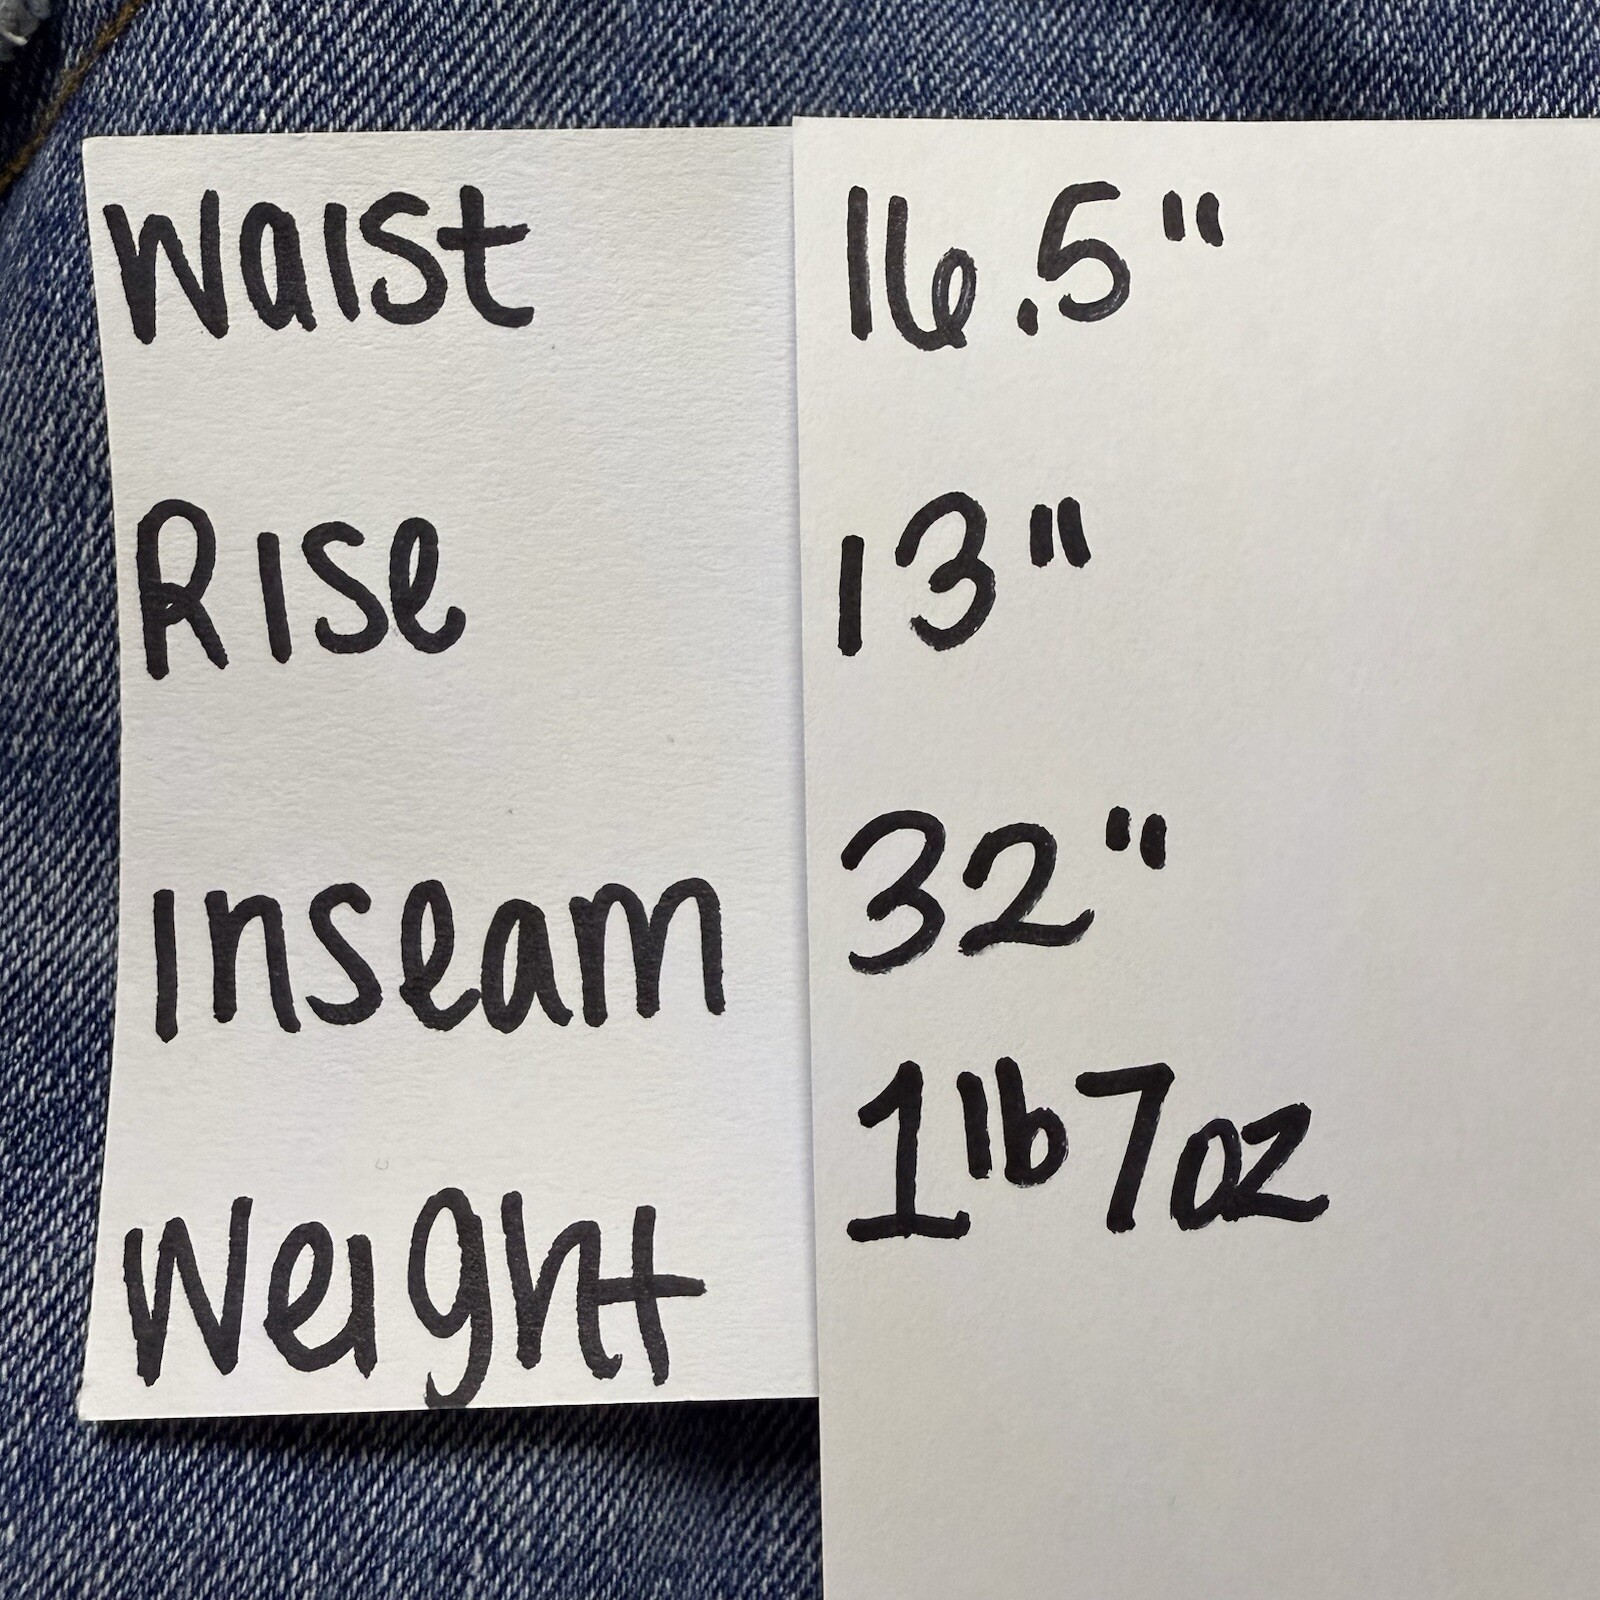 Waist 16.5"
Rise 13"
Inseam 32"
Weight 1lb 7oz